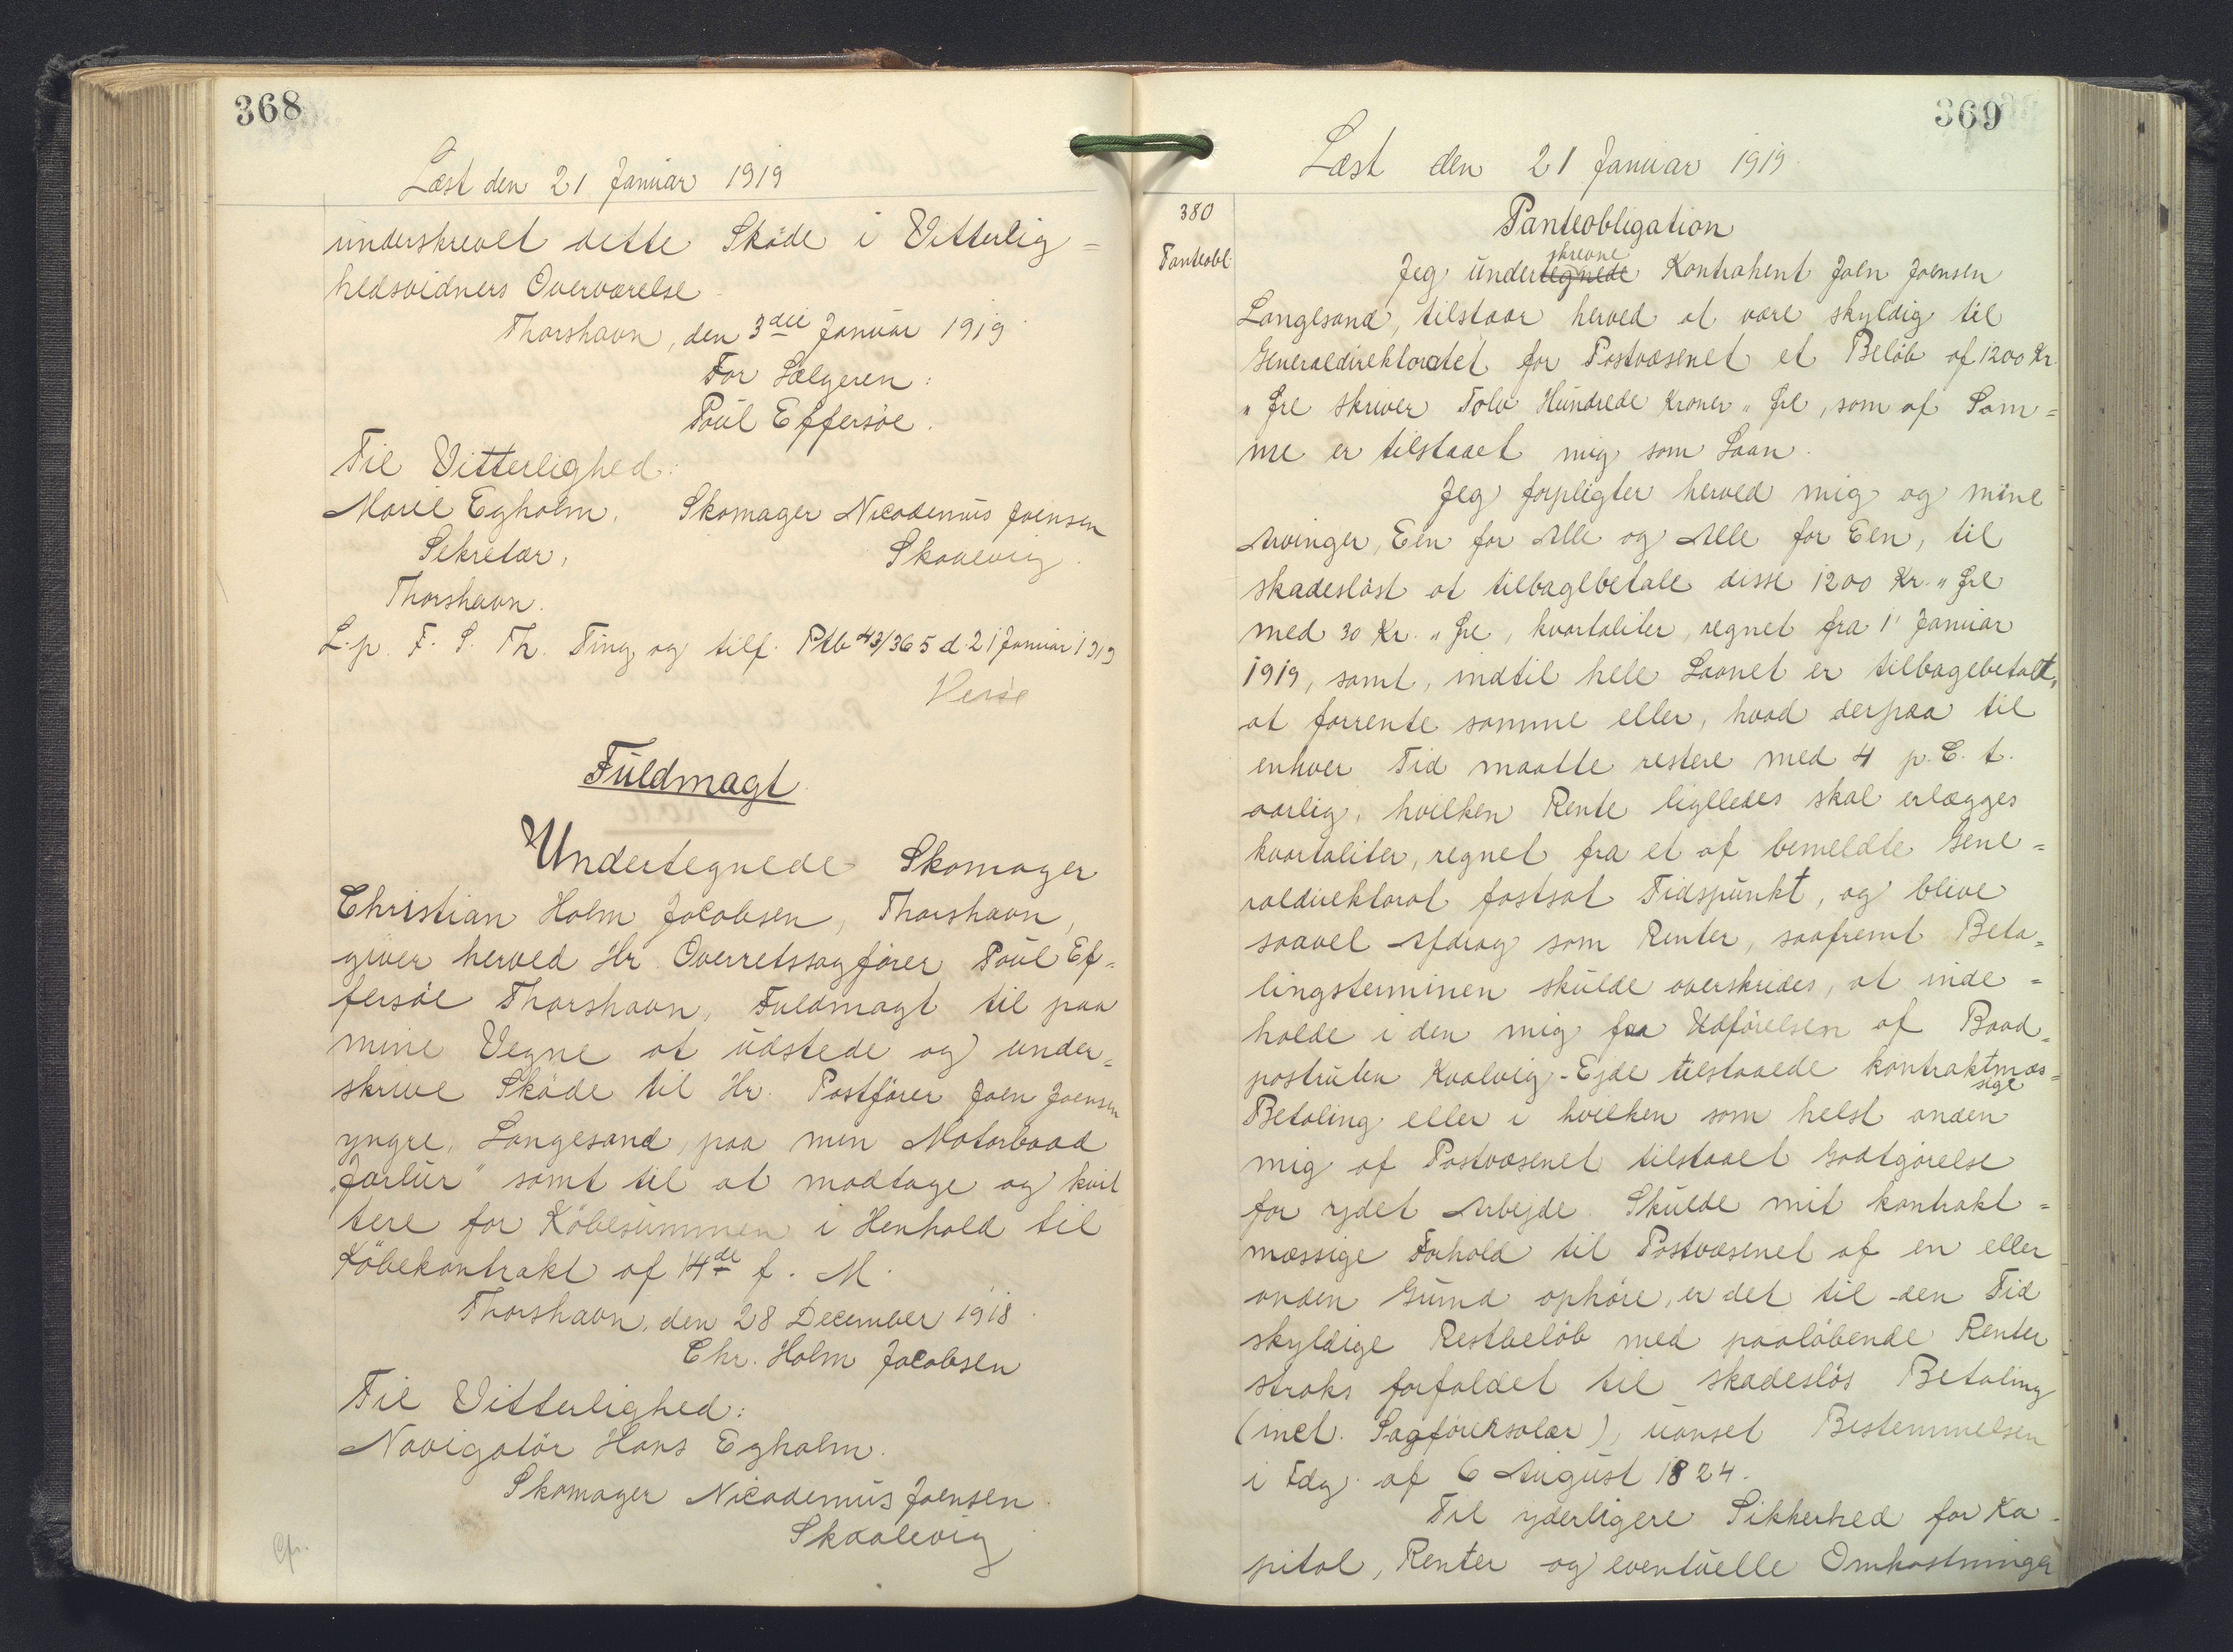 368
Læst den 21 Januar 1919
underskrevet dette Sköde i Vitterlig=
hedsvidners Overværelse
Thorshavn, den 3die Januar 1919
For Sælgeren:
Poul Effersöe.
Til Vitterlighed:
Marie Egholm. Skomager Nicodemus Joensen
Sekretær, Skaalevig.
Thorshavn.
L. p. F. S. Th. Ting og tilf. Ptb 43/365 d. 21 Januar 1919
Fuldmagt
Undertegnede Skomager
Christian Holm Jacobsen, Thorshavn,
giver herved Hr. Overretssagförer Poul Ef=
fersöe Thorshavn, Fuldmagt til paa
mine Vegne at udstede og under=
skrive Sköde til Hr. Postförer Joen Joensen
yngre, Langesand, paa min Motorbaad
"Jarlur" samt til at modtage og kvit
tere for Köbesummen i Henhold til
Köbekontrakt af 14de f. M.
Thorshavn, den 28 December 1918.
Chr. Holm Jacobsen
Til Vitterlighed:
Navigatör Hans Egholm.
Skomager Nicodemus Joensen.
Skaalevig
Cfr.
369
Læst den 21 Januar 1919.
380
Panteobligation
Panteobl.
skrevne
Jeg undertegnede Kontrahent Joen Joensen
Langesand, tilstaar herved at være skyldig til
Generaldirektoratet for Postvæsenet et Belöb af 1200 Kr.
" Øre skriver Tolv Hundrede Kroner " Øre, som af Sam=
me er tilstaaet mig som Laan.
Jeg forpligter herved mig og mine
Arvinger, Een for Alle og Alle for Een, til
skadeslöst at tilbagebetale disse 1200 Kr. " Øre
med 30 Kr. " Øre, kvartaliter, regnet fra 1' Januar
1919, samt, indtil hele Laanet er tilbagebetalt,
at forrente samme eller, hvad derpaa til
enhver Tid maatte restere med 4 p. C. t.
aarlig, hvilken Rente ligeledes skal erlægges
kvartaliter, regnet fra et af bemeldte Gene=
raldirektorat fastsat Tidspunkt, og blive
saavel Afdrag som Renter, saafremt Beta=
lingsterminen skulde overskrides, at inde=
holde i den mig fra Udförelsen af Baad=
postruten Kvalvig-Ejde tilstaaede kontraktmæs=
sige
Betaling eller i hvilken som helst anden
mig af Postvæsenet tilstaaet Godtgörelse
for ydet Arbejde. Skulde mit kontrakt=
mæssige Forhold til Postvæsenet af en eller
anden Grund ophöre, er det til den Tid
skyldige Restbelöb med paalöbende Renter
straks forfaldet til skadeslös Betaling
(incl. Sagförersalær), uanset Bestemmelsen
i Fdg. af 6 August 1824.
Til yderligere Sikkerhed for Ka=
pital, Renter og eventuelle Omkostninger